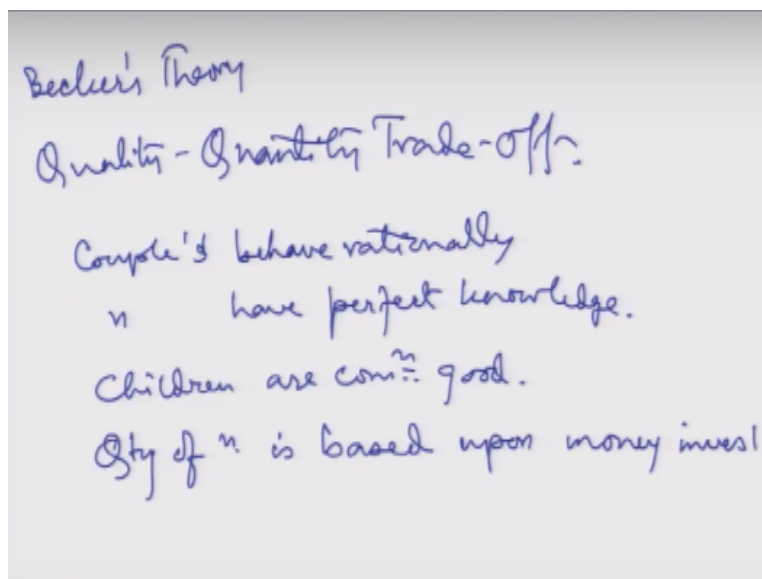 Becker's Theory
Quality - Quantity Trade-off:
Couple's behave rationally
" have perfect knowledge.
Children are comⁿ good.
Qty of " is based upon money invest